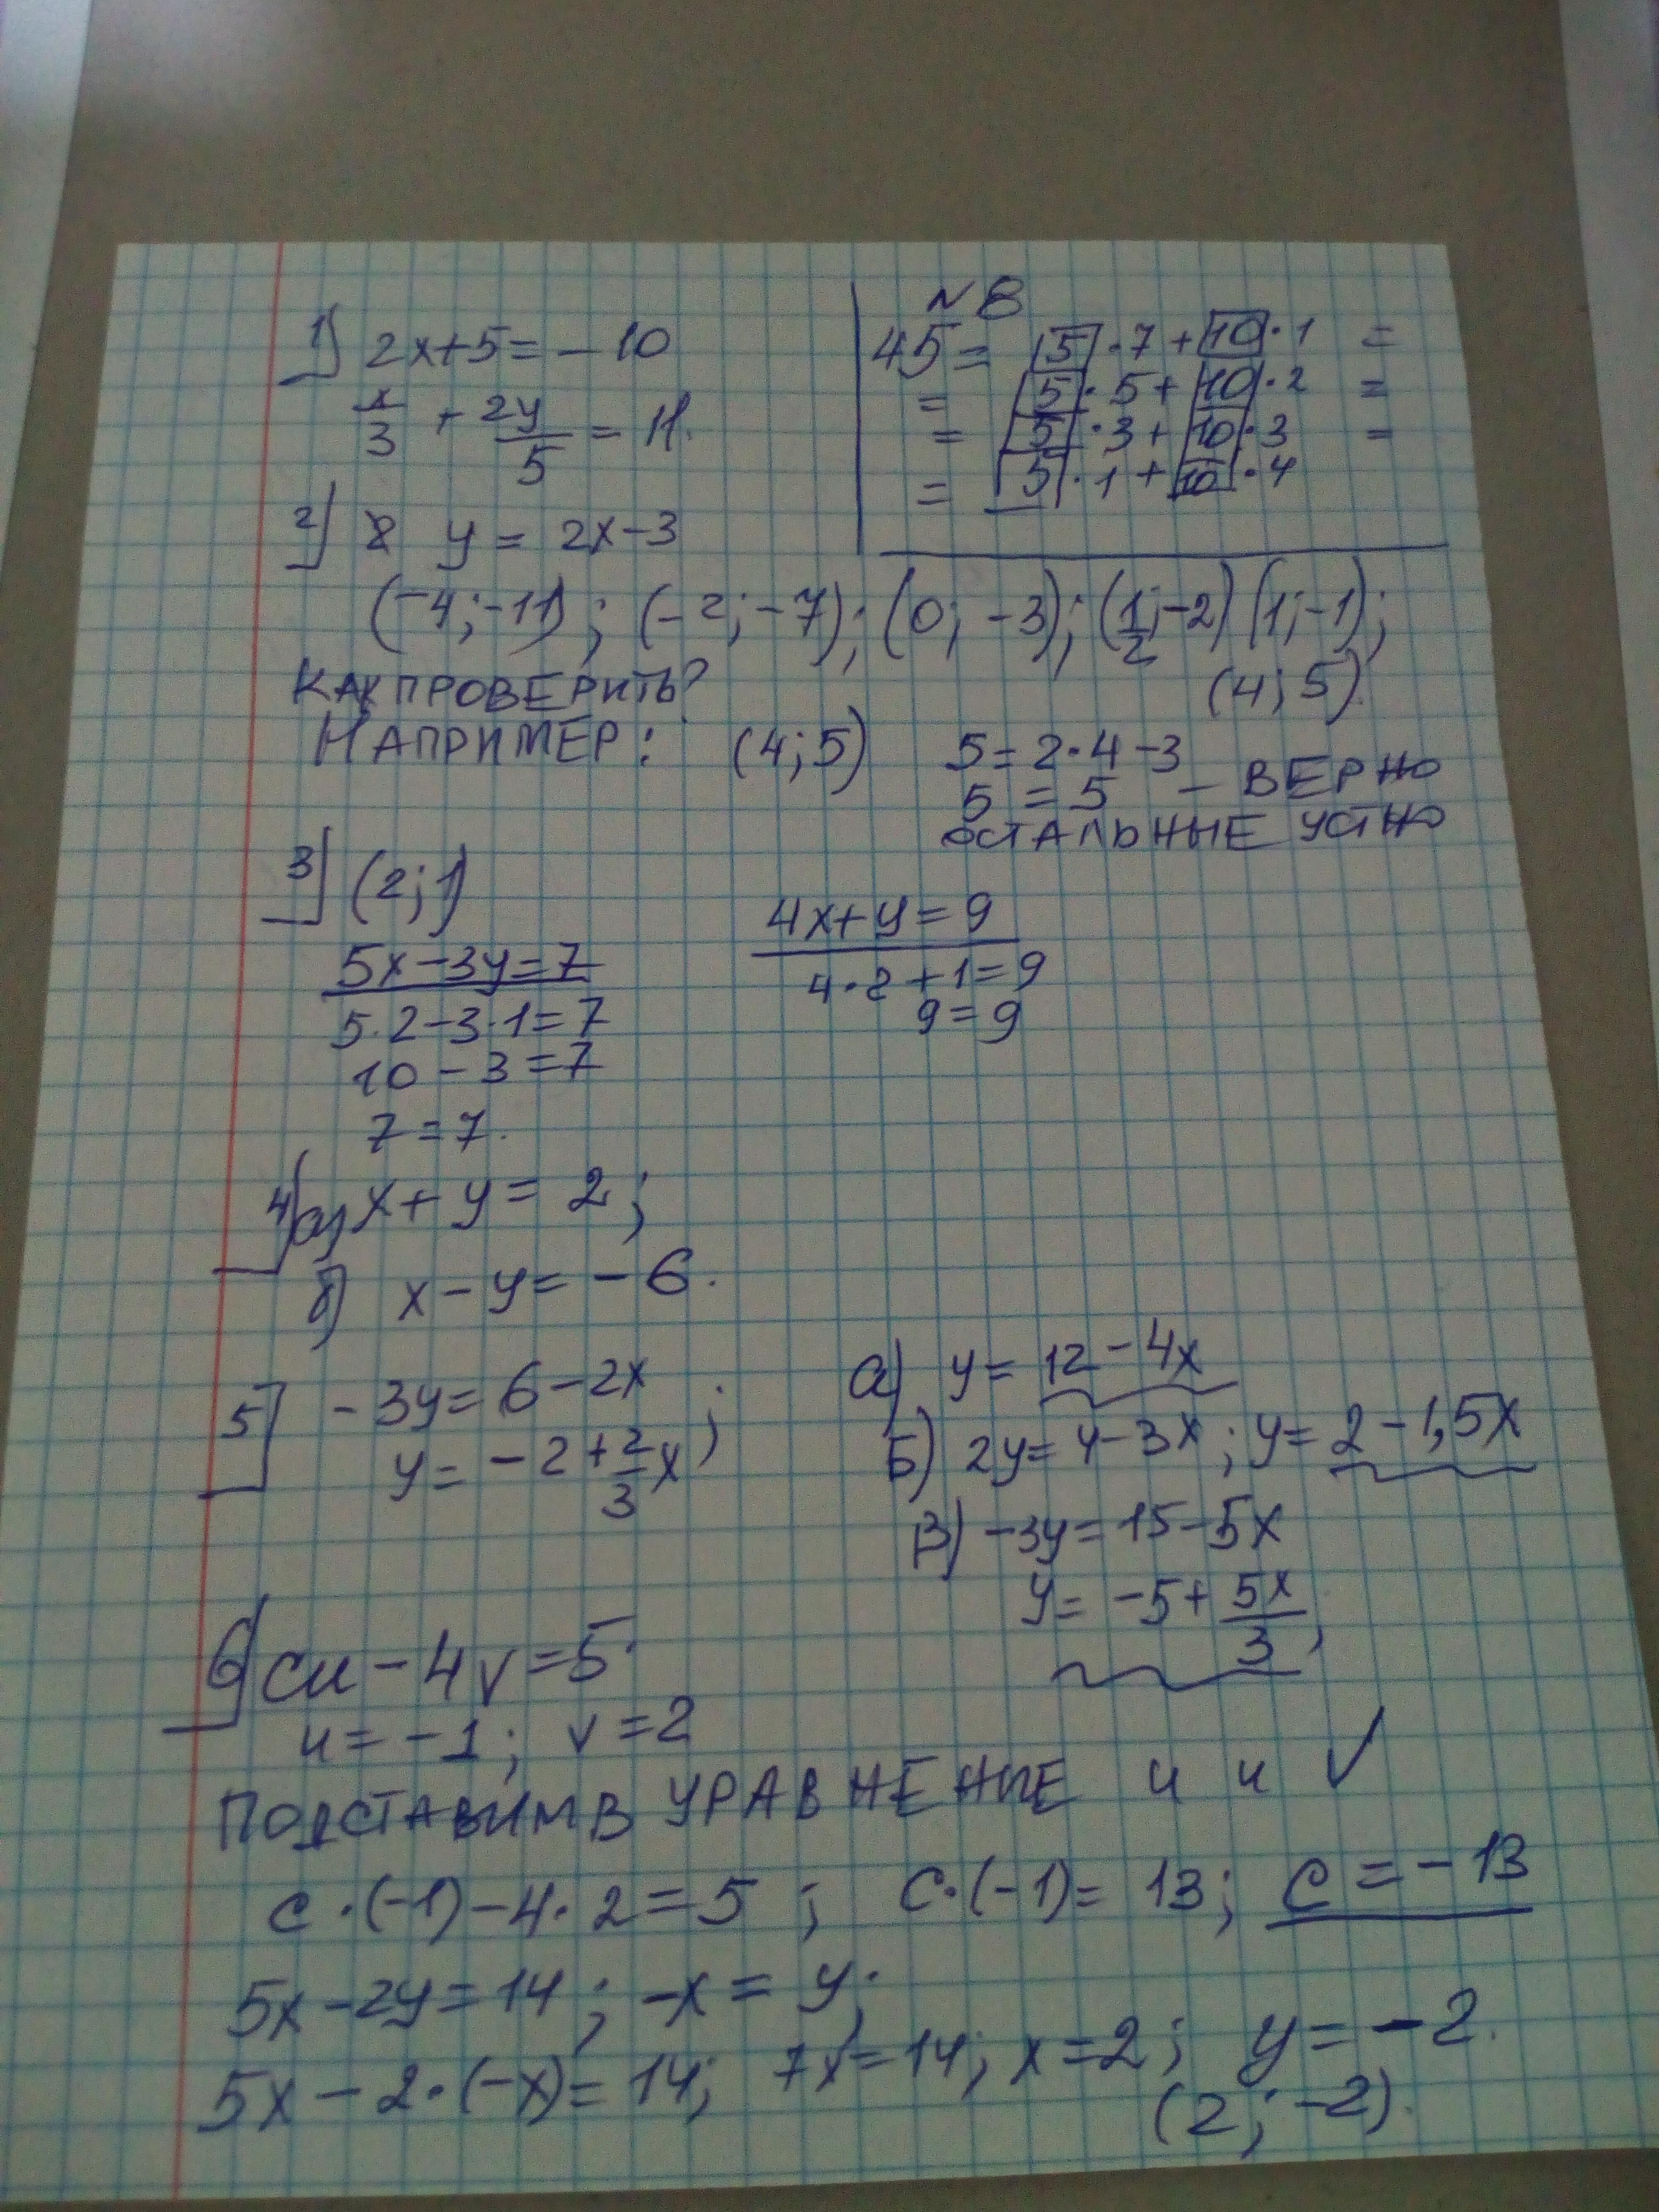 1) 2x+5=-10
x/3 + 2y/5 = 11.
N 8
45= 5·7+10·1 =
= 5·5+10·2 =
= 5·3+10·3 =
= 5·1+10·4
2) y = 2x-3
(-4;-11); (-2;-7); (0; -3); (1/2;-2) (1;-1);
(4; 5).
КАК ПРОВЕРИТЬ?
НАПРИМЕР: (4;5) 5=2·4-3
5 = 5 - ВЕРНО
ОСТАЛЬНЫЕ УСТНО
3) (2;1)
5x-3y=7
5·2-3·1=7
10-3=7
7=7.
4x+y=9
4·2+1=9
9=9
4) а) x+y=2;
б) x-y=-6.
5) -3y=6-2x
y=-2+2/3x;
а) y= 12-4x
Б) 2y=4-3x; y= 2-1,5x
В) -3y=15-5x
y= -5+ 5x/3,
6) cu-4v=5.
u=-1; v=2
ПОДСТАВИМ В УРАВНЕНИЕ u и v
c·(-1)-4·2=5; c·(-1)= 13; c=-13
5x-2y=14; -x= y;
5x-2·(-x)=14; 7x=14; x=2; y=-2.
(2; -2).